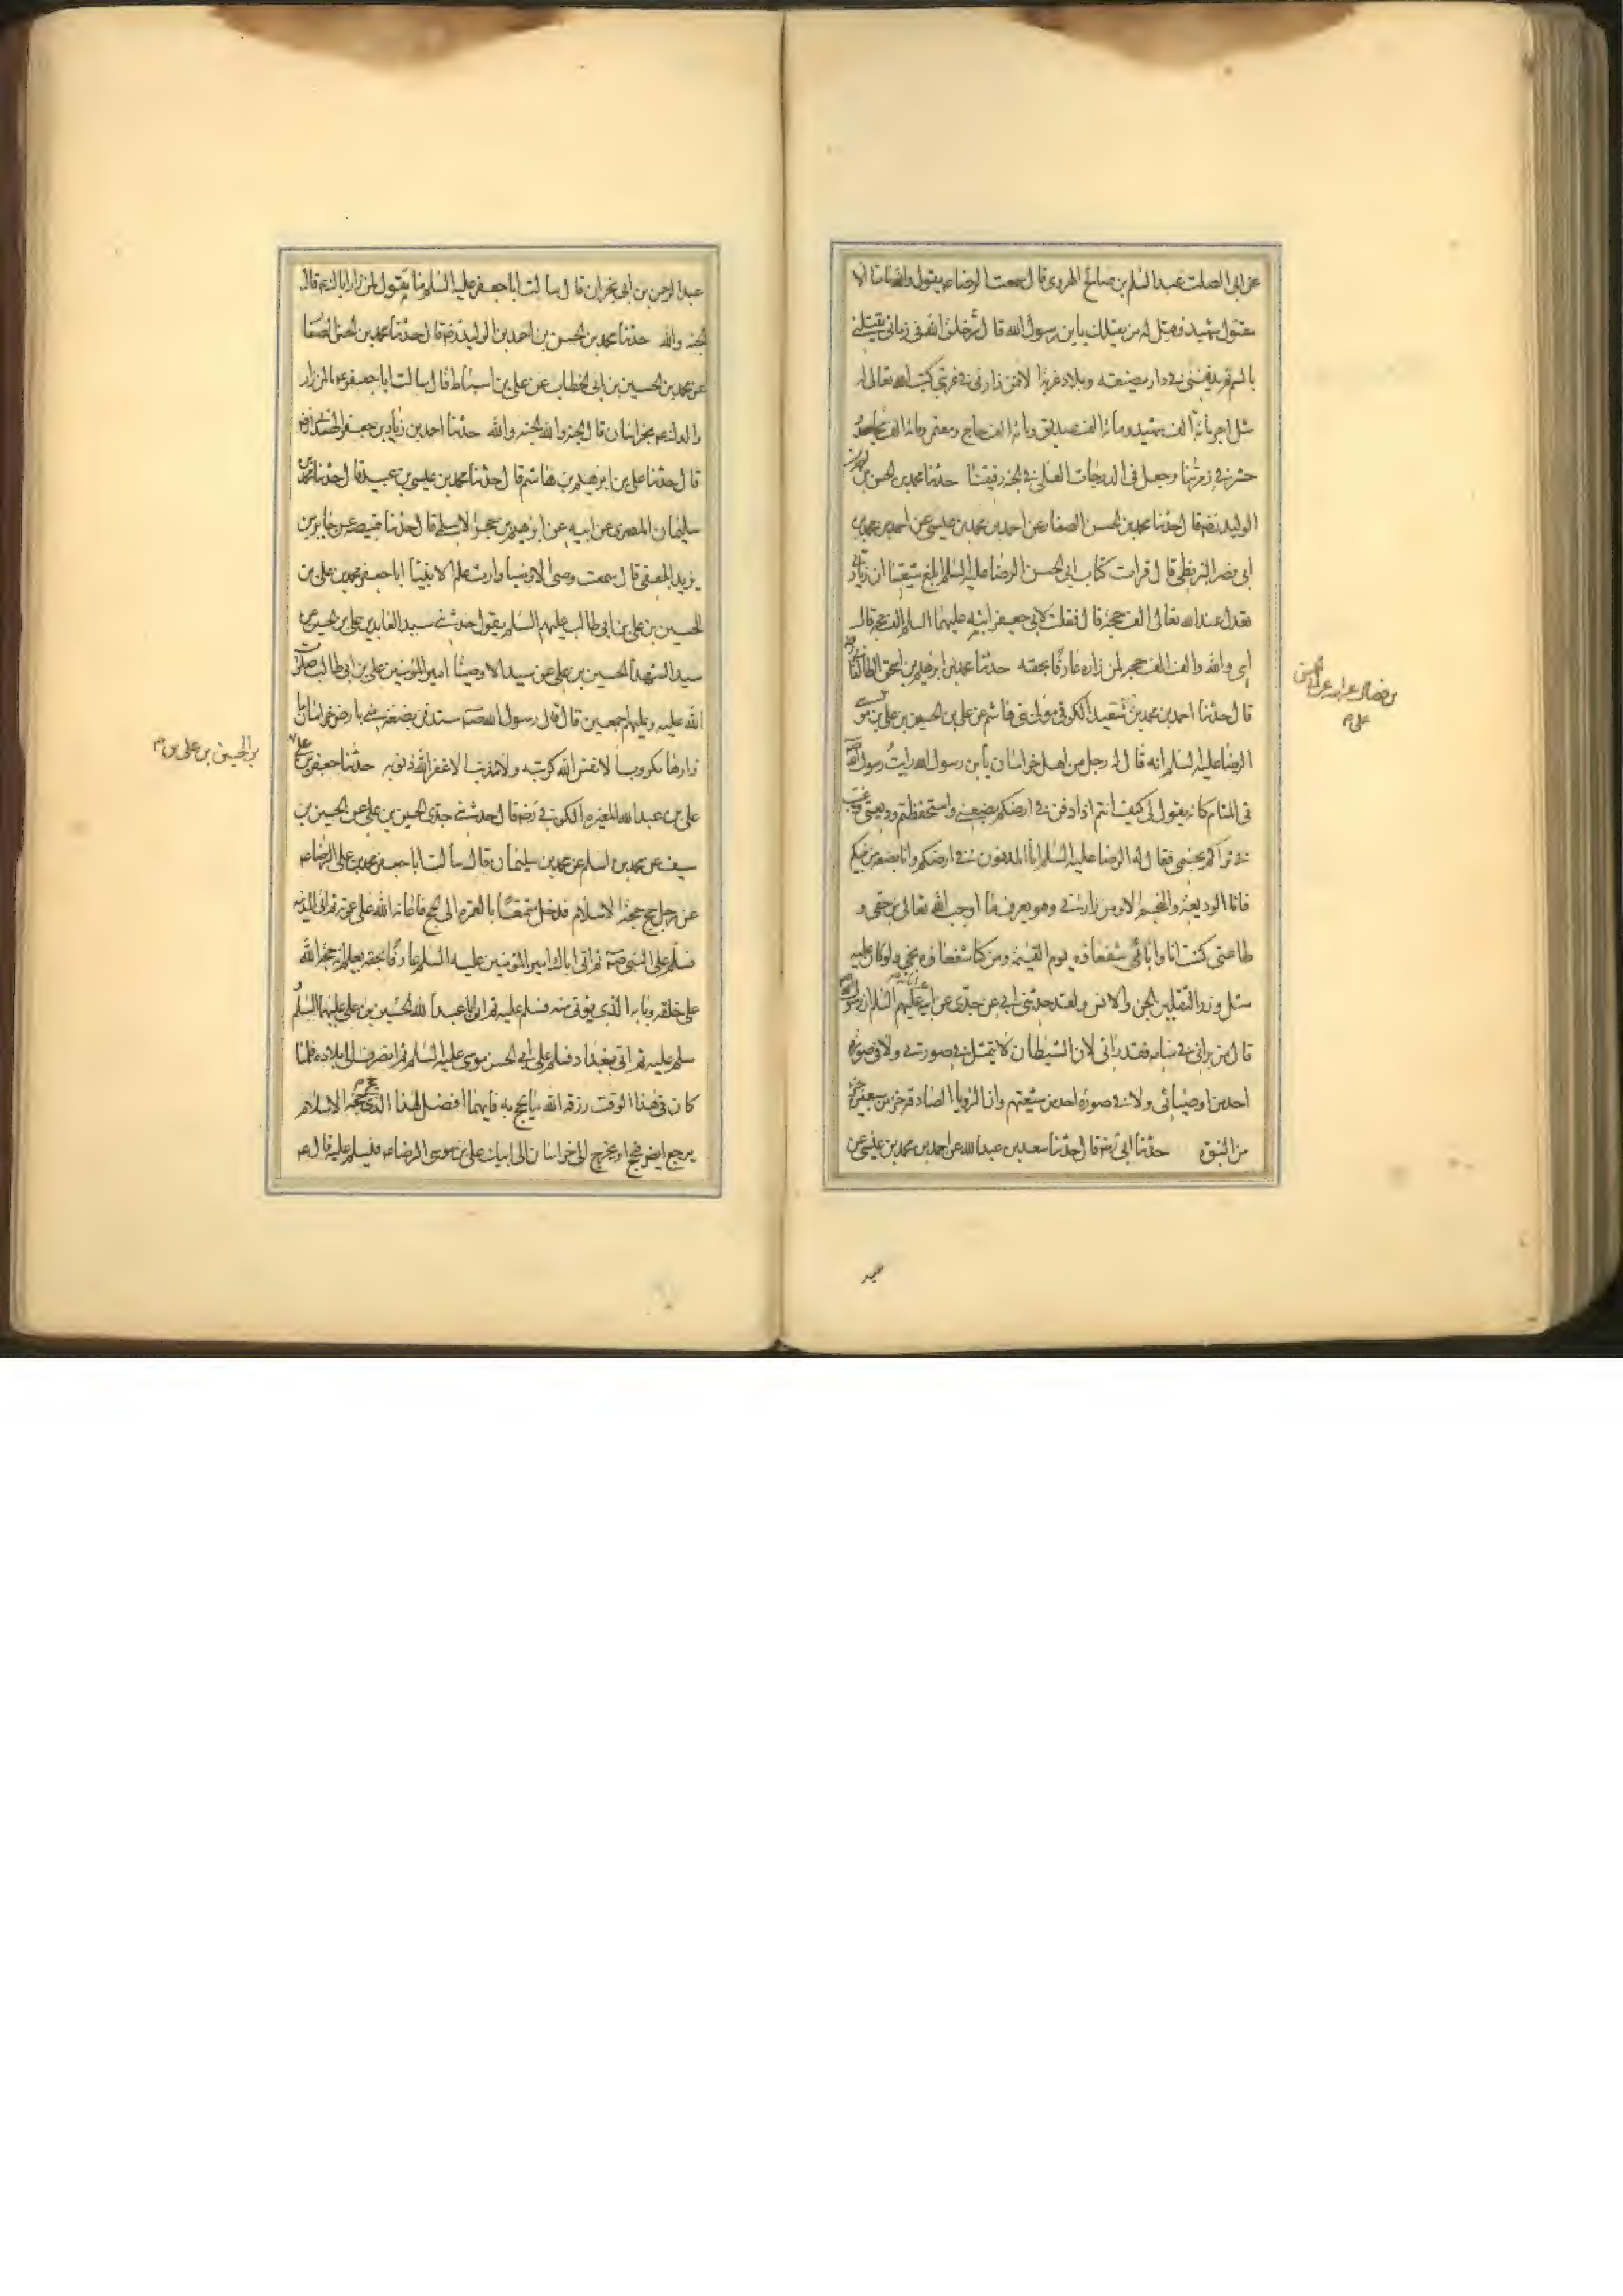 عن ابى الصلت عبد السلم بن صالح الهروى قال سمعت الرضا عم يقول والله ما منا الا
مقتول شهيد فقيل له من يقتلك يا بن رسول الله قال شر خلق الله فى زمانى يقتلنى
بالسم ثم يدفننى فى دار مضيعه وبلاد غربة الا فمن زارنى فى غربتى كتب الله تعالى له
مثل اجر مائة الف شهيد ومائة الف صديق ومائة الف حاج ومعتمر ومائة الف مجاهد
حشر فى زمرتنا وجعل فى الدرجات العلى فى الجنه رفيقنا حدثنا محمد بن الحسن بن احمد بن
الوليد رضه قال حدثنا محمد بن الحسن الصفار عن احمد بن محمد بن عيسى عن احمد بن محمد بن
ابى نصر البزنطى قال قرات كتاب ابى الحسن الرضا عليه السلم ابلغ شيعتنا ان زيارتى
تعدل عند الله تعالى الف حجة قال فقلت لابى جعفر ابنه عليهما السلم الف حجة قال
اى والله والف الف حجة لمن زاره عارفا بحقه حدثنا محمد بن ابرهيم بن اسحق الطالقانى رضه
قال حدثنا احمد بن محمد بن سعيد الكوفى مولى بنى هاشم عن على بن الحسين بن على بن موسى
الرضا عليه السلم انه قال له رجل من اهل خراسان يا بن رسول الله رايت رسول الله صه
فى المنام كانه يقول لى كيف انتم اذا دفن فى ارضكم بضعتى واستحفظتم وديعتى وغيب
فى ثراكم نجمى فقال له الرضا عليه السلم انا المدفون فى ارضكم وانا بضعة من نبيكم
فانا الوديعة والنجم الا ومن زارنى وهو يعرف ما اوجب الله تعالى من حقى و
طاعتى كنت انا وابائى شفعاؤه يوم القيمة ومن كنا شفعاؤه نجى ولو كان عليه
مثل وزر الثقلين الجن والانس ولقد حدثنى ابى عن جدى عن ابيه عليهم السلم ان رسول الله صه
قال من رانى فى منامه فقد رانى لان الشيطان لا يتمثل فى صورتى ولا فى صورة
احد من اوصيائى ولا فى صورة احد من شيعتهم وان الرويا الصادقة جزء من سبعين جزء
من النبوة حدثنا ابى رضه قال حدثنا سعد بن عبد الله عن احمد بن محمد بن عيسى عن
بن فضال عن ابيه عن ابى الحسن
على م
عبد
عبد الرحمن بن ابى نجران قال سالت ابا جعفر عليه السلم ما تقول لمن زار اباك عم قال
الجنه والله حدثنا محمد بن الحسن بن احمد بن الوليد رضه قال حدثنا محمد بن الحسن الصفا
عن محمد بن الحسين بن ابى الخطاب عن على بن اسباط قال سالت ابا جعفر عم ما لمن زار
والدك عم بخراسان قال الجنة والله الجنه والله حدثنا احمد بن زياد بن جعفر الهمدانى رضه
قال حدثنا على بن ابرهيم بن هاشم قال حدثنا محمد بن عيسى بن عبيد قال حدثنا محمد بن
سليمان المصرى عن ابيه عن ابرهيم بن حجر الاسلمى قال حدثنا قبيصه عن جابر بن
يزيد الجعفى قال سمعت وصى الاوصيا ووارث علم الانبيا ابا جعفر محمد بن على بن
الحسين بن على بن ابى طالب عليهم السلم يقول حدثنى سيد العابدين على بن الحسين عن
سيد الشهدا الحسين بن على عن سيد الاوصيا امير المؤمنين على بن ابى طالب صلوات
الله عليه وعليهم اجمعين قال قال رسول الله صه ستدفن بضعة منى بارض خراسان ما
زارها مكروب الا نفس الله كربته ولا مذنب الا غفر الله ذنوبه حدثنا جعفر بن على
على بن عبد الله المغيرة الكوفى رضه قال حدثنى جدى الحسن بن على عن الحسين بن
سيف عن محمد بن اسلم عن محمد بن سليمان قال سالت ابا جعفر محمد بن على الرضا عم
عن رجل حج حجة الاسلام فدخل متمتعا بالعمرة الى الحج فاعانه الله على عمرته ثم اتى المدينه
فسلم على النبى صه ثم اتى اباك امير المؤمنين عليه السلم عارفا بحقه يعلم انه حجة الله
على خلقه وبابه الذى يؤتى منه فسلم عليه ثم اتى ابا عبد الله الحسين بن على عليهما السلم
سلم عليه ثم اتى بغداد فسلم على ابى الحسن موسى عليه السلم ثم انصرف الى بلاده فلما
كان فى هذا الوقت رزقه الله ما يحج به فايهما افضل لهذا الذى حج حجة الاسلام
يرجع ايضا فيحج او يخرج الى خراسان الى ابيك على بن موسى الرضا عم فيسلم عليه قال عم
بن الحسين بن على بن م